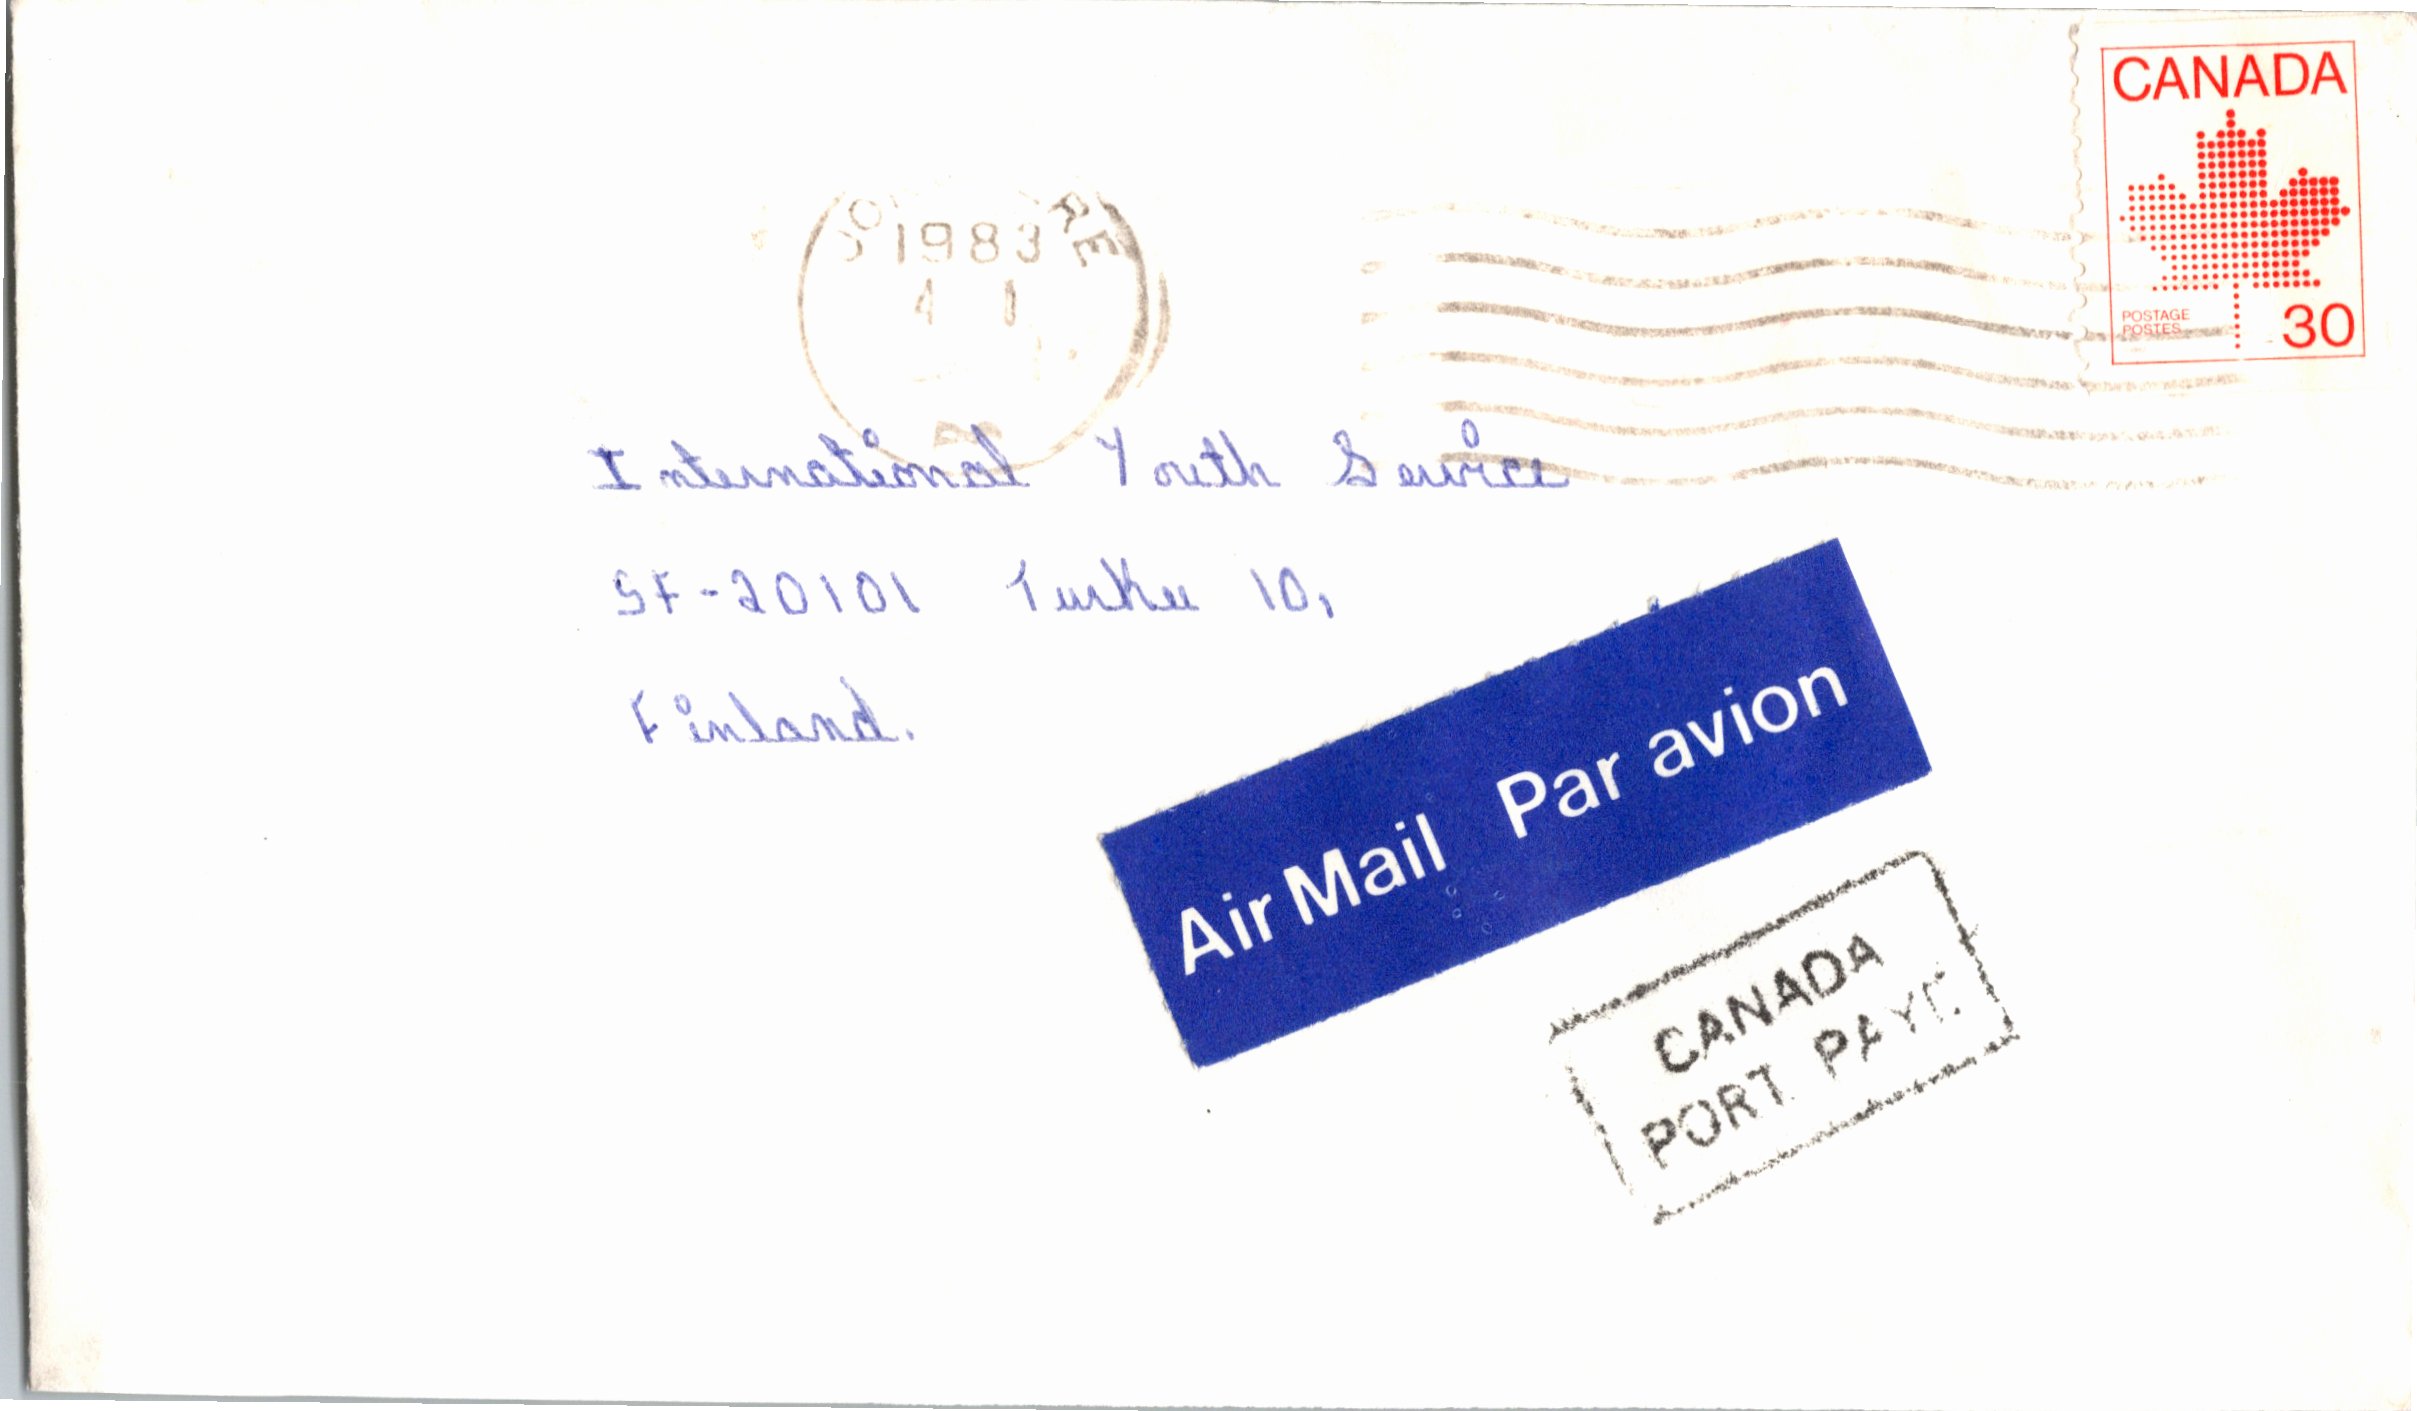 CANADA
POSTAGE
POSTES
30
1983
4 1
International Youth Service
SF-20101 Turku 10,
Finland.
Air Mail Par avion
CANADA
PORT PAYE